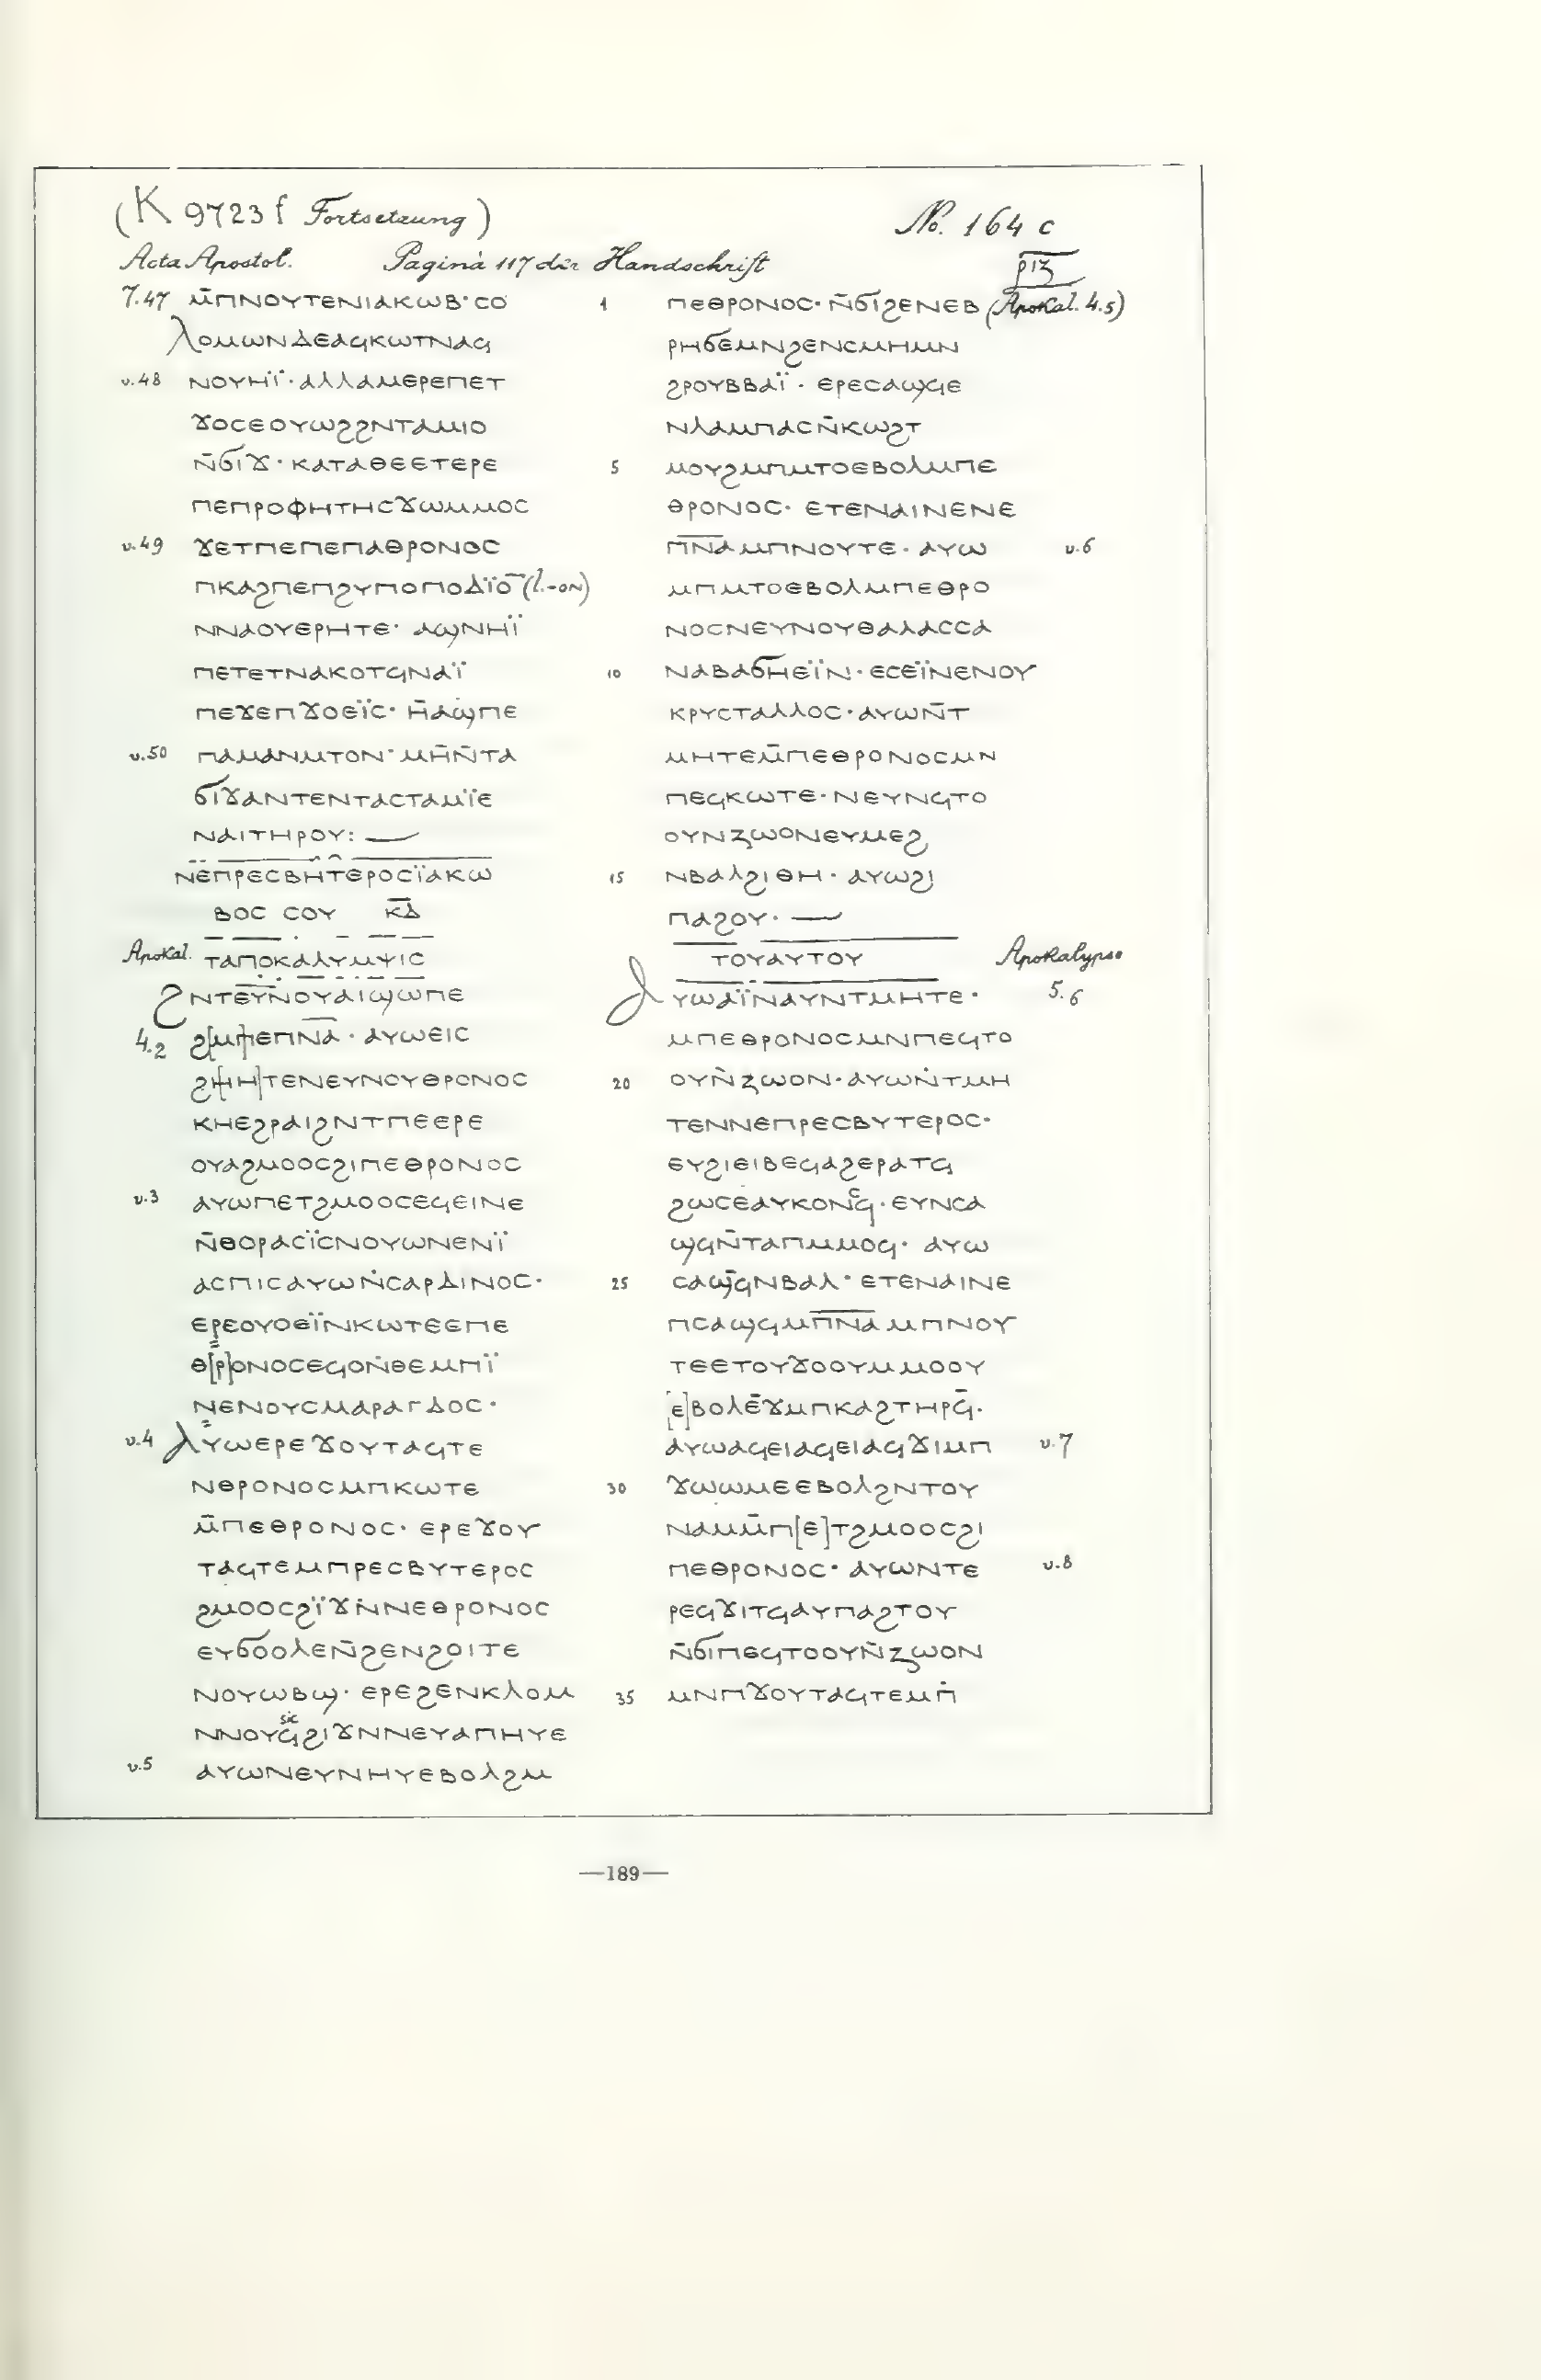 (K 9723 f Fortsetzung)
No. 164 c
Acta Apostol. Pagina 117 der Handschrift
ⲣⲓⲍ
7.47 ⲙ̄ⲡⲛⲟⲩⲧⲉⲛⲓⲁⲕⲱⲃ· ⲥⲟ
ⲗⲟⲙⲱⲛⲇⲉⲁϥⲕⲱⲧⲛⲁϥ
v.48 ⲛⲟⲩⲏⲓ̈· ⲁⲗⲗⲁⲙⲉⲣⲉⲡⲉⲧ
ϫⲟⲥⲉⲟⲩⲱϩϩⲛⲧⲁⲙⲓⲟ
ⲛ̄ϭⲓϫ· ⲕⲁⲧⲁⲑⲉⲉⲧⲉⲣⲉ
ⲡⲉⲡⲣⲟⲫⲏⲧⲏⲥϫⲱⲙⲙⲟⲥ
v.49 ϫⲉⲧⲡⲉⲡⲉⲡⲁⲑⲣⲟⲛⲟⲥ
ⲡⲕⲁϩⲡⲉⲡϩⲩⲡⲟⲡⲟⲇⲓ̈ⲟ̅ (l.-ⲟⲛ)
ⲛⲛⲁⲟⲩⲉⲣⲏⲧⲉ· ⲁϣⲛⲏⲓ̈
ⲡⲉⲧⲉⲧⲛⲁⲕⲟⲧϥⲛⲁⲓ̈
ⲡⲉϫⲉⲡϫⲟⲉⲓ̈ⲥ· ⲏ̄ⲁϣⲡⲉ
v.50 ⲡⲁⲙⲁⲛⲙⲧⲟⲛ· ⲙⲏ̄ⲛ̄ⲧⲁ
ϭⲓϫⲁⲛⲧⲉⲛⲧⲁⲥⲧⲁⲙⲓ̈ⲉ
ⲛⲁⲓⲧⲏⲣⲟⲩ: —
ⲛⲉⲡⲣⲉⲥⲃⲏⲧⲉⲣⲟⲥⲓ̈ⲁⲕⲱ
ⲃⲟⲥ ⲥⲟⲩ ⲕ̅ⲇ̅
Apokal. ⲧⲁⲡⲟⲕⲁⲗⲩⲙⲯⲓⲥ
ϩⲛⲧⲉⲩⲛⲟⲩⲁⲓϣⲱⲡⲉ
4.2 ϩ[ⲙ]ⲡⲉⲡⲛ̅ⲁ̅· ⲁⲩⲱⲉⲓⲥ
ϩⲏⲏⲧⲉⲛⲉⲩⲛⲟⲩⲑⲣⲟⲛⲟⲥ
ⲕⲏⲉϩⲣⲁⲓϩⲛⲧⲡⲉⲉⲣⲉ
ⲟⲩⲁϩⲙⲟⲟⲥϩⲓⲡⲉⲑⲣⲟⲛⲟⲥ
v.3 ⲁⲩⲱⲡⲉⲧϩⲙⲟⲟⲥⲉϥⲉⲓⲛⲉ
ⲛ̄ⲑⲟⲣⲁⲥⲓ̈ⲥⲛⲟⲩⲱⲛⲉⲛⲓ̈
ⲁⲥⲡⲓⲥⲁⲩⲱⲛ̇ⲥⲁⲣⲇⲓⲛⲟⲥ·
ⲉⲣⲉⲟⲩⲟⲉⲓ̈ⲛⲕⲱⲧⲉⲉⲡⲉ
ⲑ[ⲣ]ⲟⲛⲟⲥⲉϥⲟⲛ̇ⲑⲉⲙⲡⲓ̈
ⲛⲉⲛⲟⲩⲥⲙⲁⲣⲁⲅⲇⲟⲥ·
v.4 ⲁⲩⲱⲉⲣⲉϫⲟⲩⲧⲁϥⲧⲉ
ⲛⲑⲣⲟⲛⲟⲥⲙⲡⲕⲱⲧⲉ
ⲙ̄ⲡⲉⲑⲣⲟⲛⲟⲥ· ⲉⲣⲉϫⲟⲩ
ⲧⲁϥⲧⲉⲙⲡⲣⲉⲥⲃⲩⲧⲉⲣⲟⲥ
ϩⲙⲟⲟⲥϩⲓ̈ϫⲛ̇ⲛⲉⲑⲣⲟⲛⲟⲥ
ⲉⲩϭⲟⲟⲗⲉⲛ̄ϩⲉⲛϩⲟⲓⲧⲉ
ⲛⲟⲩⲱⲃϣ· ⲉⲣⲉϩⲉⲛⲕⲗⲟⲙ
sic
ⲛⲛⲟⲩϥϩⲓϫⲛⲛⲉⲩⲁⲡⲏⲩⲉ
v.5 ⲁⲩⲱⲛⲉⲩⲛⲏⲩⲉⲃⲟⲗϩⲙ
1 ⲡⲉⲑⲣⲟⲛⲟⲥ· ⲛ̄ϭⲓϩⲉⲛⲉⲃ (Apokal. 4.5)
ⲣⲏϭⲉⲙⲛϩⲉⲛⲥⲙⲏⲙⲛ
ϩⲣⲟⲩⲃⲃⲁⲓ̈· ⲉⲣⲉⲥⲁϣϥⲉ
ⲛⲗⲁⲙⲡⲁⲥⲛ̄ⲕⲱϩⲧ
5 ⲙⲟⲩϩⲙⲡⲙⲧⲟⲉⲃⲟⲗⲙⲡⲉ
ⲑⲣⲟⲛⲟⲥ· ⲉⲧⲉⲛⲁⲓⲛⲉⲛⲉ
ⲡⲛ̅ⲁ̅ⲙⲡⲛⲟⲩⲧⲉ· ⲁⲩⲱ v.6
ⲙⲡⲙⲧⲟⲉⲃⲟⲗⲙⲡⲉⲑⲣⲟ
ⲛⲟⲥⲛⲉⲩⲛⲟⲩⲑⲁⲗⲁⲥⲥⲁ
10 ⲛⲁⲃⲁϭⲏⲉⲓ̈ⲛ· ⲉⲥⲉⲓ̈ⲛⲉⲛⲟⲩ
ⲕⲣⲩⲥⲧⲁⲗⲗⲟⲥ· ⲁⲩⲱⲛ̄ⲧ
ⲙⲏⲧⲉⲙ̄ⲡⲉⲑⲣⲟⲛⲟⲥⲙⲛ
ⲡⲉϥⲕⲱⲧⲉ· ⲛⲉⲩⲛϥⲧⲟ
ⲟⲩⲛⲍⲱⲟⲛⲉⲩⲙⲉϩ
15 ⲛⲃⲁⲗϩⲓⲑⲏ· ⲁⲩⲱϩⲓ
ⲡⲁϩⲟⲩ· —
ⲧⲟⲩⲁⲩⲧⲟⲩ Apokalypse
ⲁⲩⲱⲁⲓ̈ⲛⲁⲩⲛⲧⲙⲏⲧⲉ· 5.6
ⲙⲡⲉⲑⲣⲟⲛⲟⲥⲙⲛⲡⲉϥⲧⲟ
20 ⲟⲩⲛ̇ⲍⲱⲟⲛ· ⲁⲩⲱⲛ̇ⲧⲙⲏ
ⲧⲉⲛⲛⲉⲡⲣⲉⲥⲃⲩⲧⲉⲣⲟⲥ·
ⲉⲩϩⲓⲉⲓⲃⲉϥⲁϩⲉⲣⲁⲧϥ
ϩⲱⲥⲉⲁⲩⲕⲟⲛⲥ̄ϥ· ⲉⲩⲛⲥⲁ
ϣϥⲛ̄ⲧⲁⲡⲙⲙⲟϥ· ⲁⲩⲱ
25 ⲥⲁϣϥⲛⲃⲁⲗ· ⲉⲧⲉⲛⲁⲓⲛⲉ
ⲡⲥⲁϣϥⲙⲡⲛ̅ⲁ̅ⲙⲡⲛⲟⲩ
ⲧⲉⲉⲧⲟⲩϫⲟⲟⲩⲙⲙⲟⲟⲩ
[ⲉ]ⲃⲟⲗⲉ̄ϫⲙⲡⲕⲁϩⲧⲏⲣϥ̄·
ⲁⲩⲱⲁϥⲉⲓⲁϥⲉⲓⲁϥϫⲓⲙⲡ v.7
30 ϫⲱⲱⲙⲉⲉⲃⲟⲗϩⲛⲧⲟⲩ
ⲛⲁⲙⲙ̄ⲡ[ⲉ]ⲧϩⲙⲟⲟⲥϩⲓ
ⲡⲉⲑⲣⲟⲛⲟⲥ· ⲁⲩⲱⲛⲧⲉ v.8
ⲣⲉϥϫⲓⲧϥⲁⲩⲡⲁϩⲧⲟⲩ
ⲛ̄ϭⲓⲡⲉϥⲧⲟⲟⲩⲛ̄ⲍⲱⲟⲛ
35 ⲙⲛⲡϫⲟⲩⲧⲁϥⲧⲉⲙⲡ̇
—189—